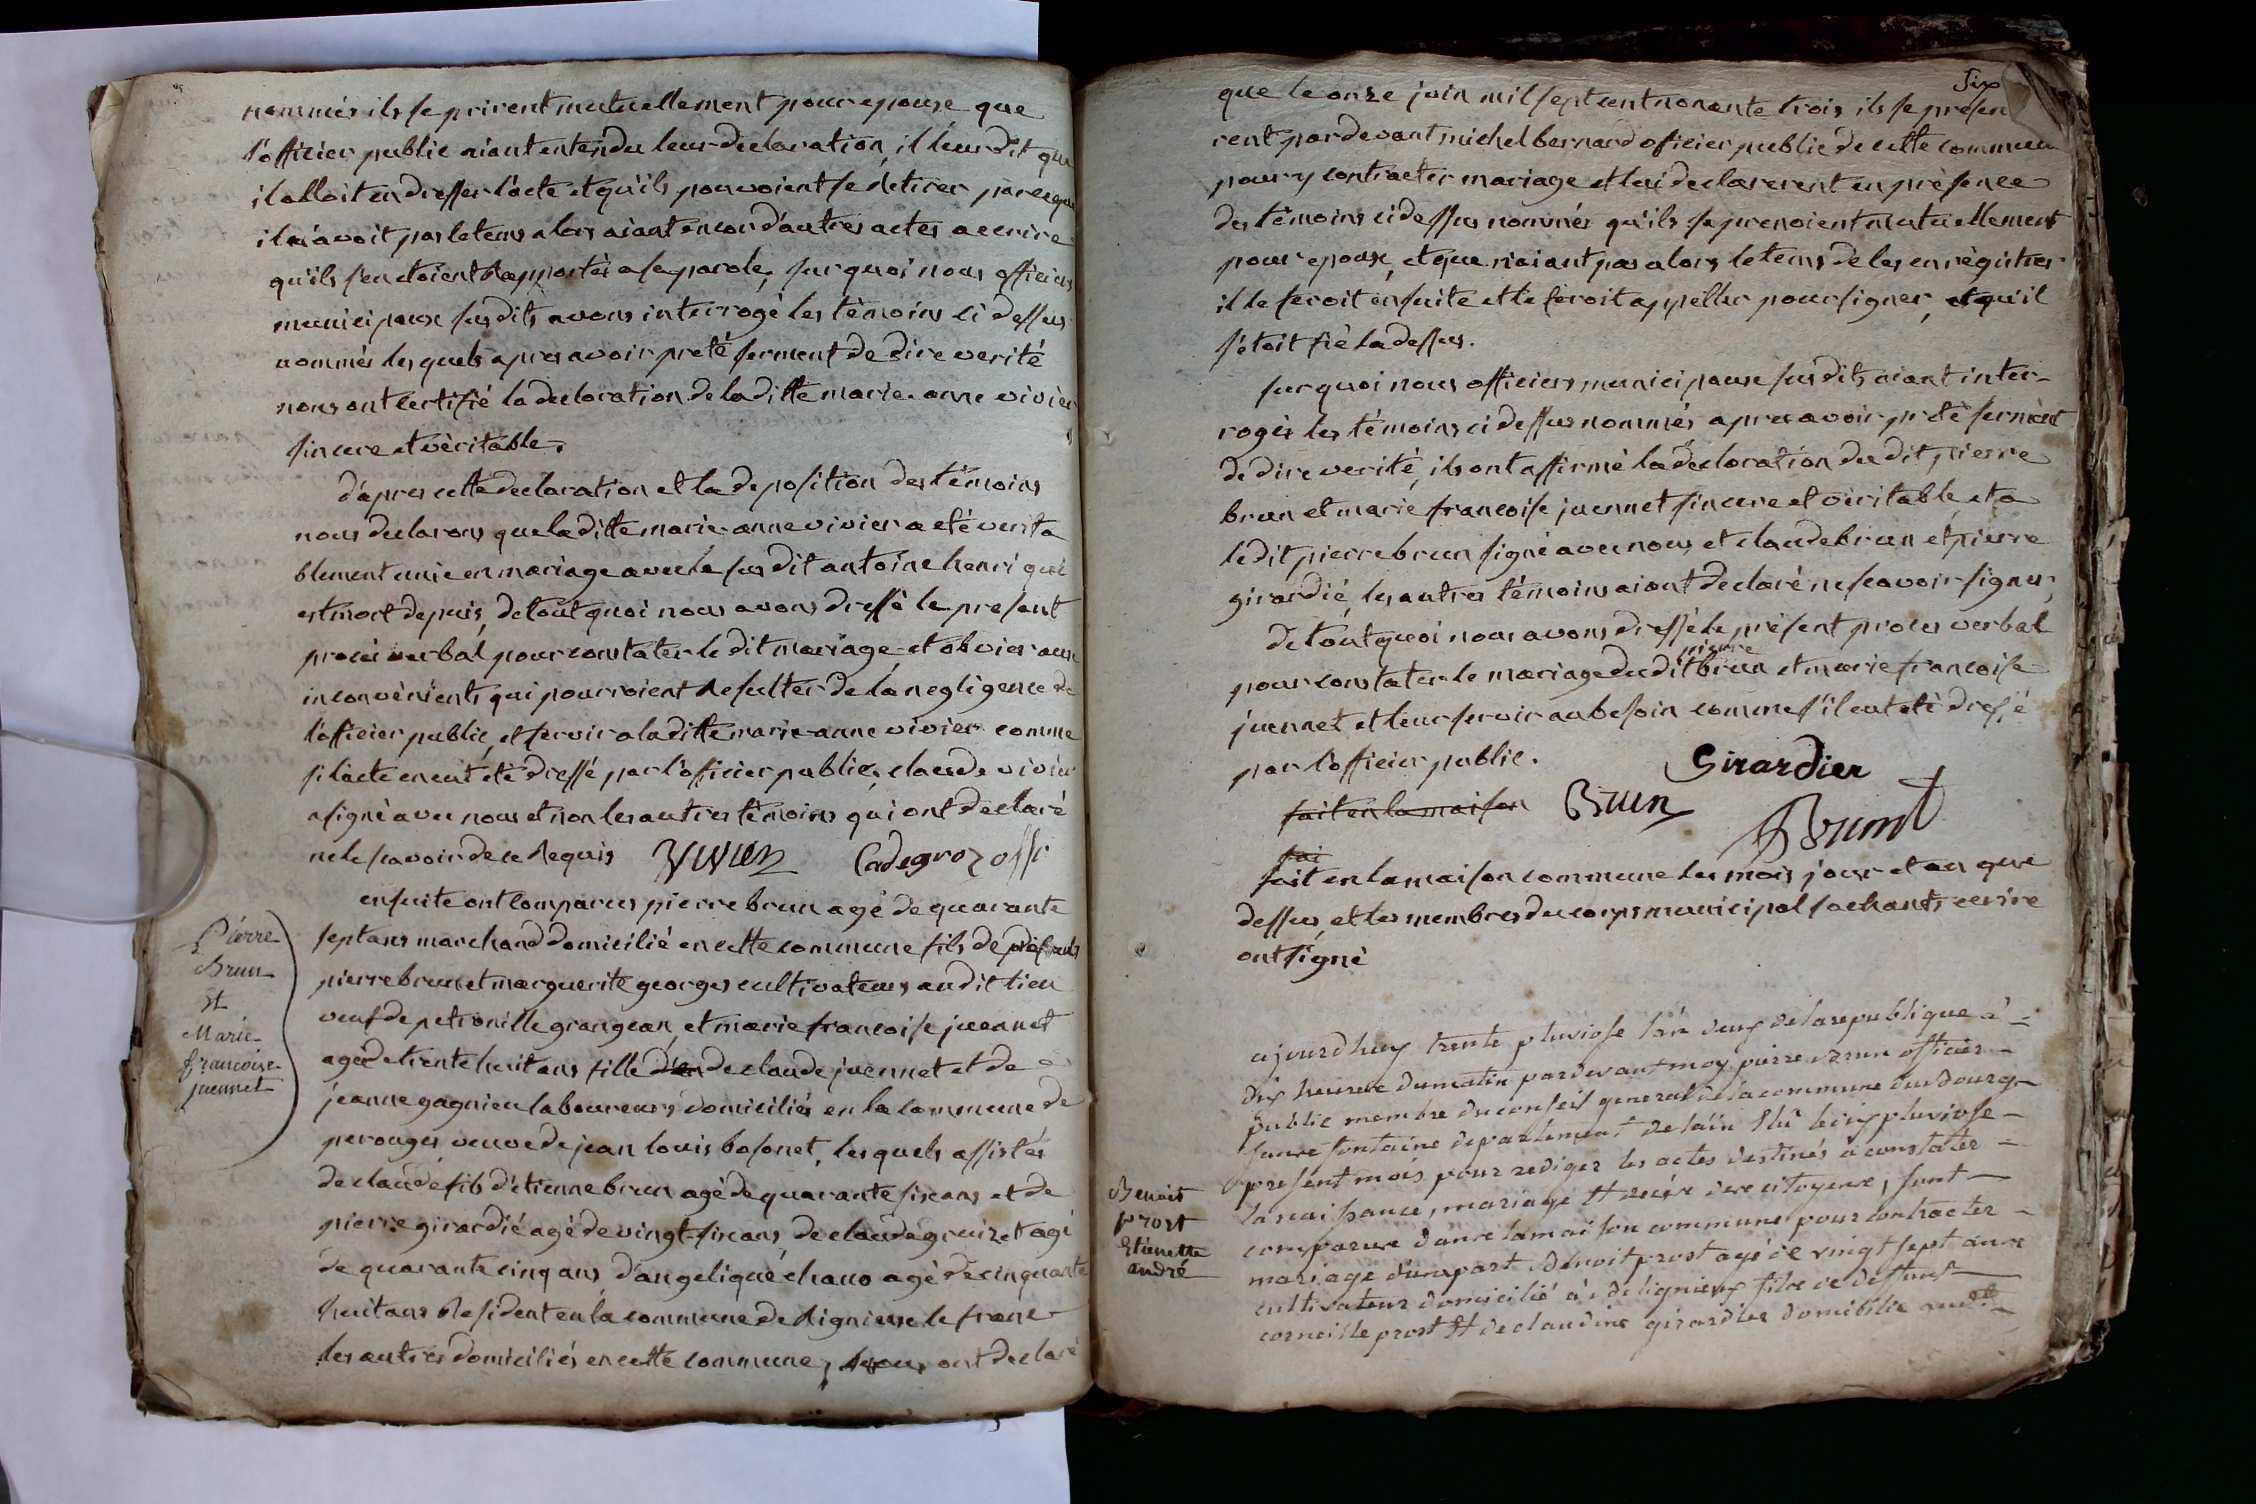 nommés ils se prirent mutuellement pour epoux que
l'officier public aiant entendu leur declaration, il leur dit qu
il alloit en dresser l'acte et qu'ils pouvoient se retirer parcequ
il n'avoit pas le tems alors aiant encor d'autres actes a ecrire
qu'ils s'en etoient rapportés a sa parole, sur quoi nous officiers
municipaux susdits avons interrogé les témoins ci dessus
nommés les quels apres avoir preté serment de dire verité
nous ont certifié la declaration de laditte marie-anne vivier
sincere et véritable.
d'apres cette declaration et la deposition des témoins
nous declarons que laditte marie-anne vivier a eté verita
blement unie en mariage avec le susdit antoine henri qui
est mort depuis, de tout quoi nous avons dressé le present
procès verbal pour constater le dit mariage et obvier aux
inconvénients qui pourroient resulter de la negligence de
l'officier public, et servir a laditte marie-anne vivier comme
si l'acte en eut eté dressé par l'officier public, claude vivier
a signé avec nous et non les autres témoins qui ont declaré
ne le scavoir de ce requis Vivier Cadegros off
ensuite ont comparus pierre brun agé de quarante
sept ans marchand domicilié en cette commune fils de défunts
pierre brun et marguerite georges cultivateurs audit lieu
veuf de petronille grangean, et marie francoise juennet
agée de trente huit ans fille de claude juennet et de
jeanne gagnieu laboureurs domiciliés en la commune de
perouges veuve de jean louis bosonet, les quels assistés
de claude fils d'etienne brun agé de quarante six ans et de
pierre girardié agé de vingt-six ans de claude gruizet agé
de quarante cinq ans d'angelique chano agé de cinquante
huit ans resident en la commune de rignieux le franc
les autres domiciliés en cette commune, nous ont declaré
Pierre
Brun
Et
Marie
francoise
juennet
Six
que le onze juin mil sept cent nonante trois ils se présen
rent pardevant michel bernard officier public de cette commun
pour y contracter mariage et lui declarerent en présence
des témoins ci dessus nommés qu'ils se prenoient mutuellement
pour epoux, et que n'aiant pas alors le tems de les enrégistrer
il le feroit ensuite et le feroit appeller pour signer, et qu'il
s'étoit fié la dessus.
sur quoi nous officiers municipaux susdits aiant inter-
rogés les témoins ci dessus nommés apres avoir preté serment
de dire verité, ils ont affirmé la declaration du dit pierre
brun et marie francoise juennet sincere et véritable, et a
ledit pierre brun signé avec nous et claude brun et pierre
girardié, les autres témoins aiant declaré ne scavoir signer,
de tout quoi nous avons dressé le présent proces verbal
pierre
pour constater le mariage dudit brun et marie francoise
juennet et leur servir au besoin comme s'il eut eté dressé
par l'officier public.
Girardier
fait en la maison Brun
Brunt
fai
fait en la maison commune les mois jour et an que
dessus, et les membres du corps municipal sachants ecrire
ont signé
ajourdhuy trente pluviose l'an deux de la republique à
dix heures du matin pardevant moy pierre brun officier
public membre du conseil general de la commune du bourg
fontaine departement de l'ain Elû le six pluviose
present mois pour rediger les actes destinés à constater
la naissance, mariage Et decés des citoyens, sont
comparus dans la maison commune pour contracter
mariage d'une part Benoit prost agé de vingt sept ans
cultivateur domicilié à fils de deffunt
corneille prost Et de claudine girardier domicilié audit
Benoit
prost
Etienette
andré